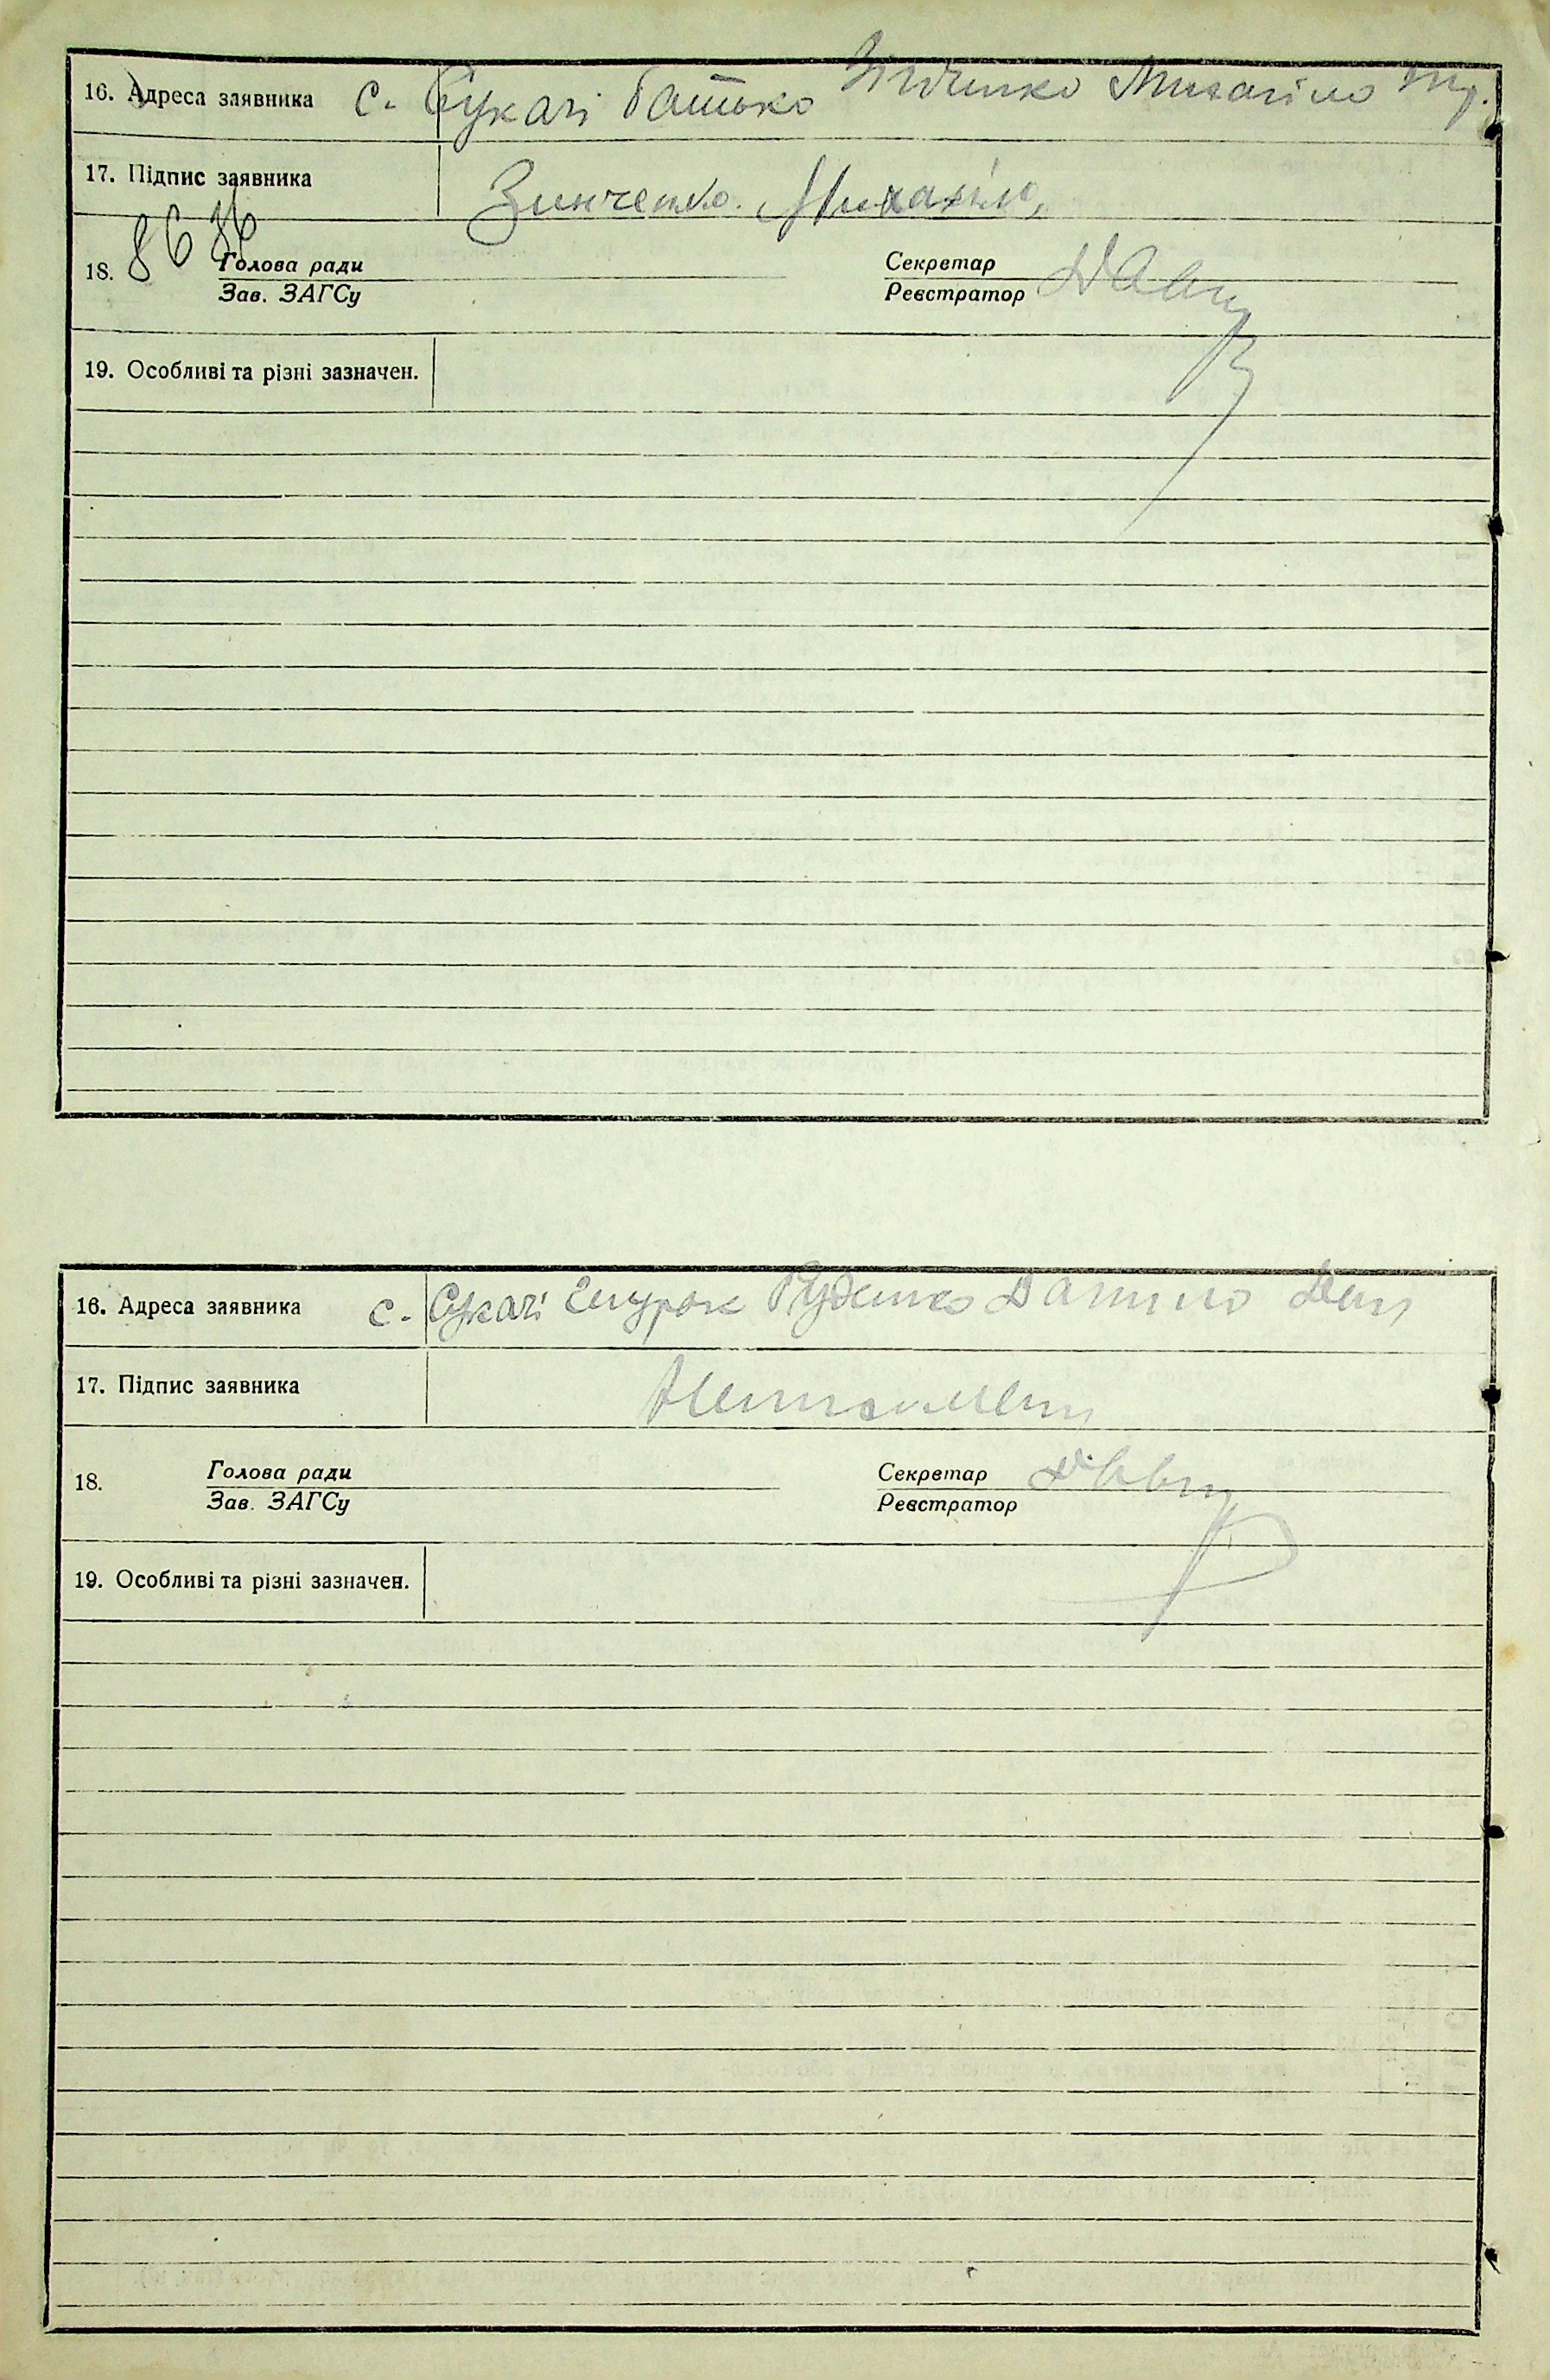 16. Адреса заявника с. Сукачі батько Зінченко Михайло
17. Підпис заявника Зинченко. Михаило,
86 86
18. Голова ради Секретар
Зав. ЗАГСу Реєстратор
19. Особливі та різні зазначен.
16. Адреса заявника с. Сукачі Руденко Данило Дем
17. Підпис заявника Неписьмен
18. Голова ради Секретар
Зав. ЗАГСу Реєстратор
19. Особливі та різні зазначен.